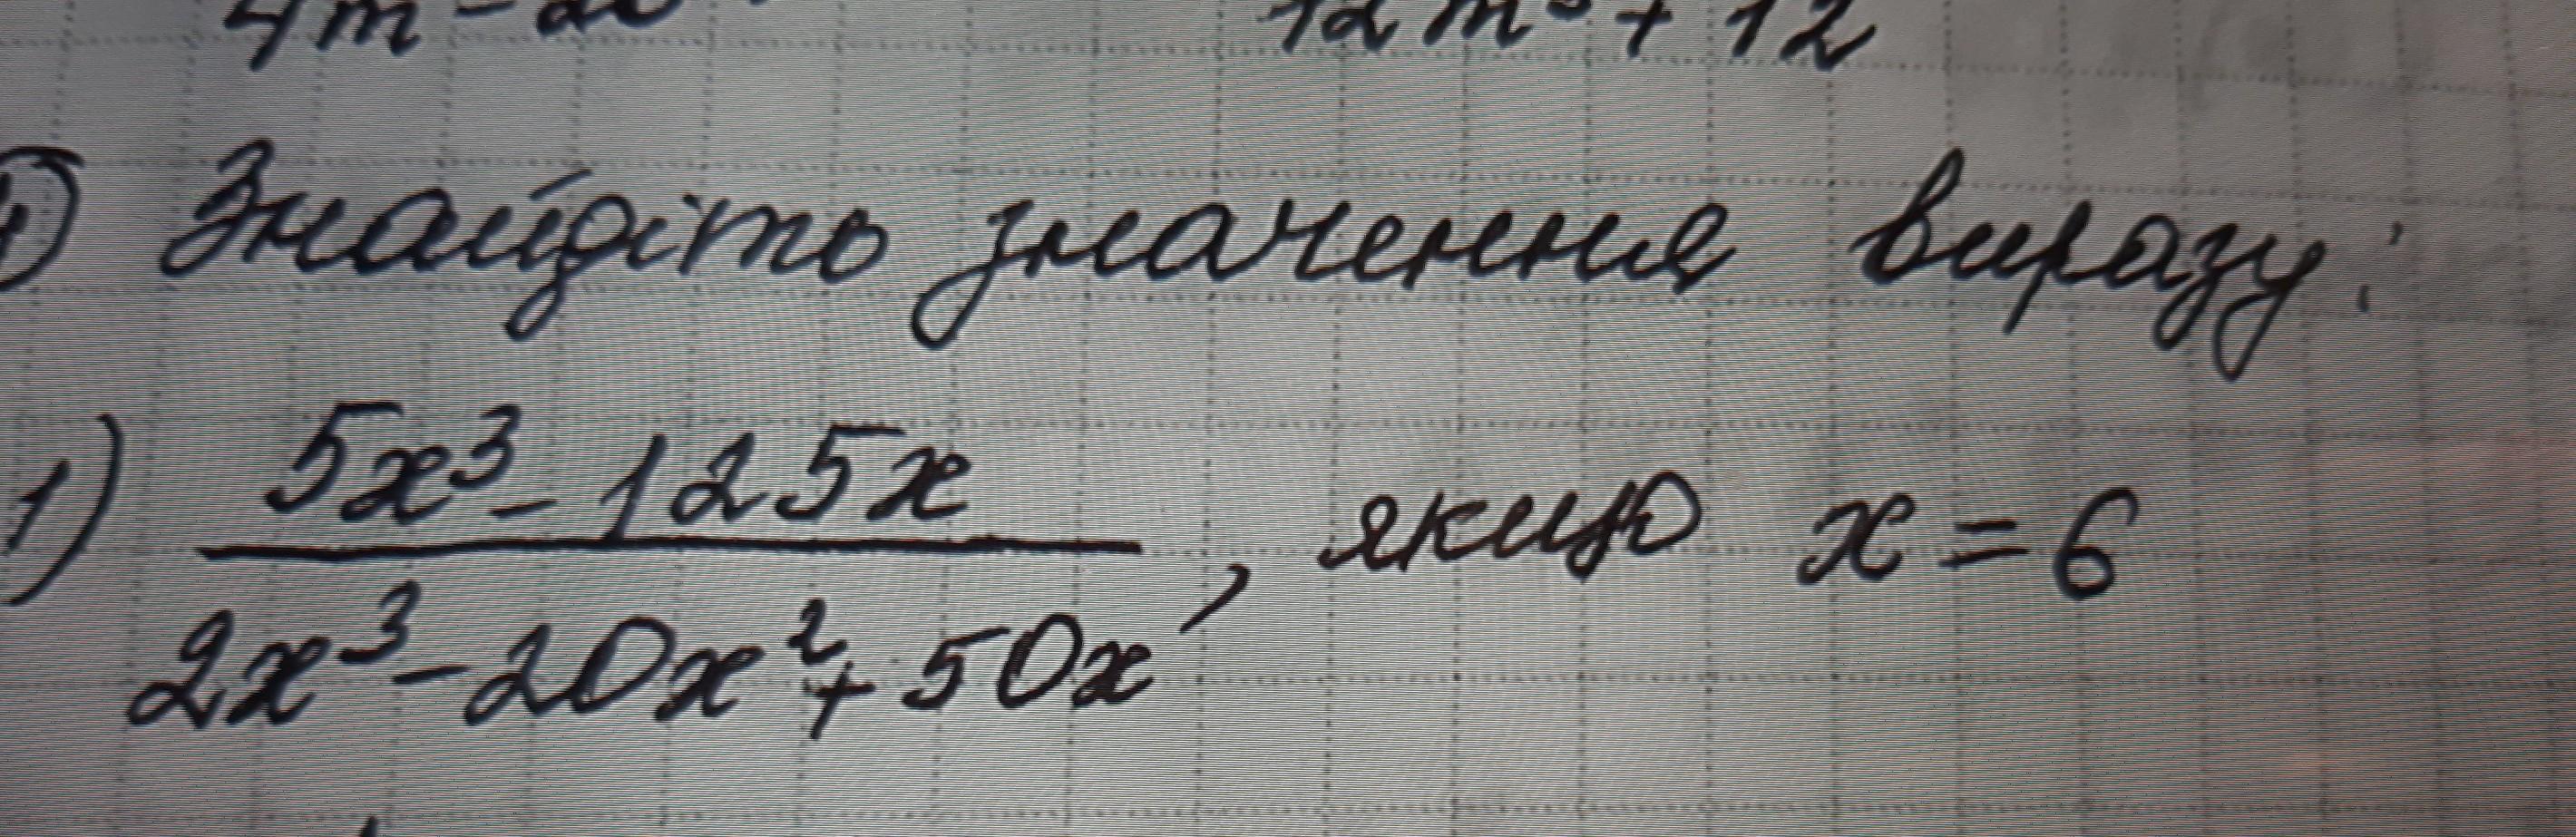 12m³ + 12
Знайдіть значення виразу:
1) 5x³ - 125x
2x³ - 20x² + 50x , якщо x = 6